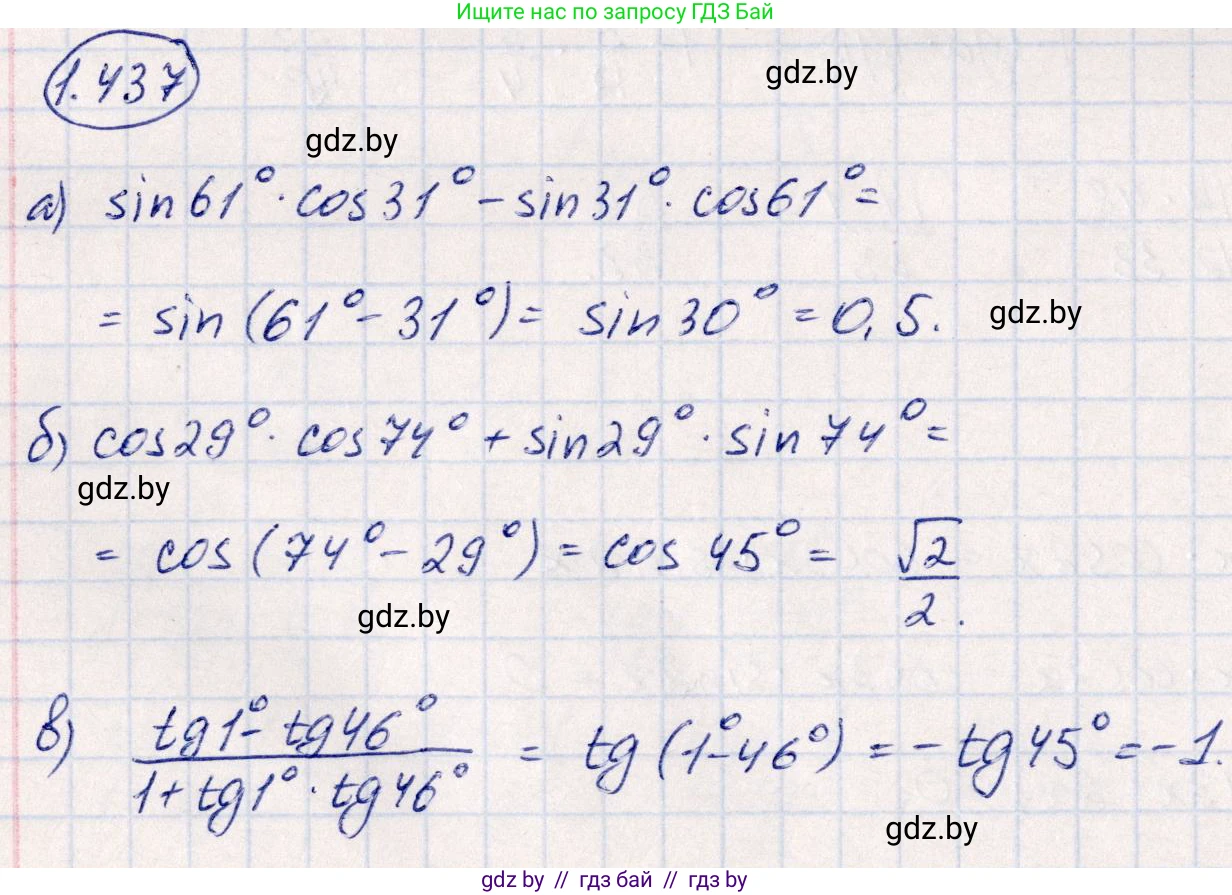 Ищите нас по запросу ГДЗ Бай
1.437
gdz.by
gdz.by
а) sin61°·cos31° – sin31°·cos61° =
= sin(61° – 31°) = sin30° = 0,5.
gdz.by
б) cos29°·cos74° + sin29°·sin74° =
gdz.by
= cos(74° – 29°) = cos45° = √2/2.
gdz.by
в) (tg1° – tg46°)/(1 + tg1°·tg46°) = tg(1° – 46°) = – tg45° = – 1.
gdz.by
gdz by // гдз бай // gdz by